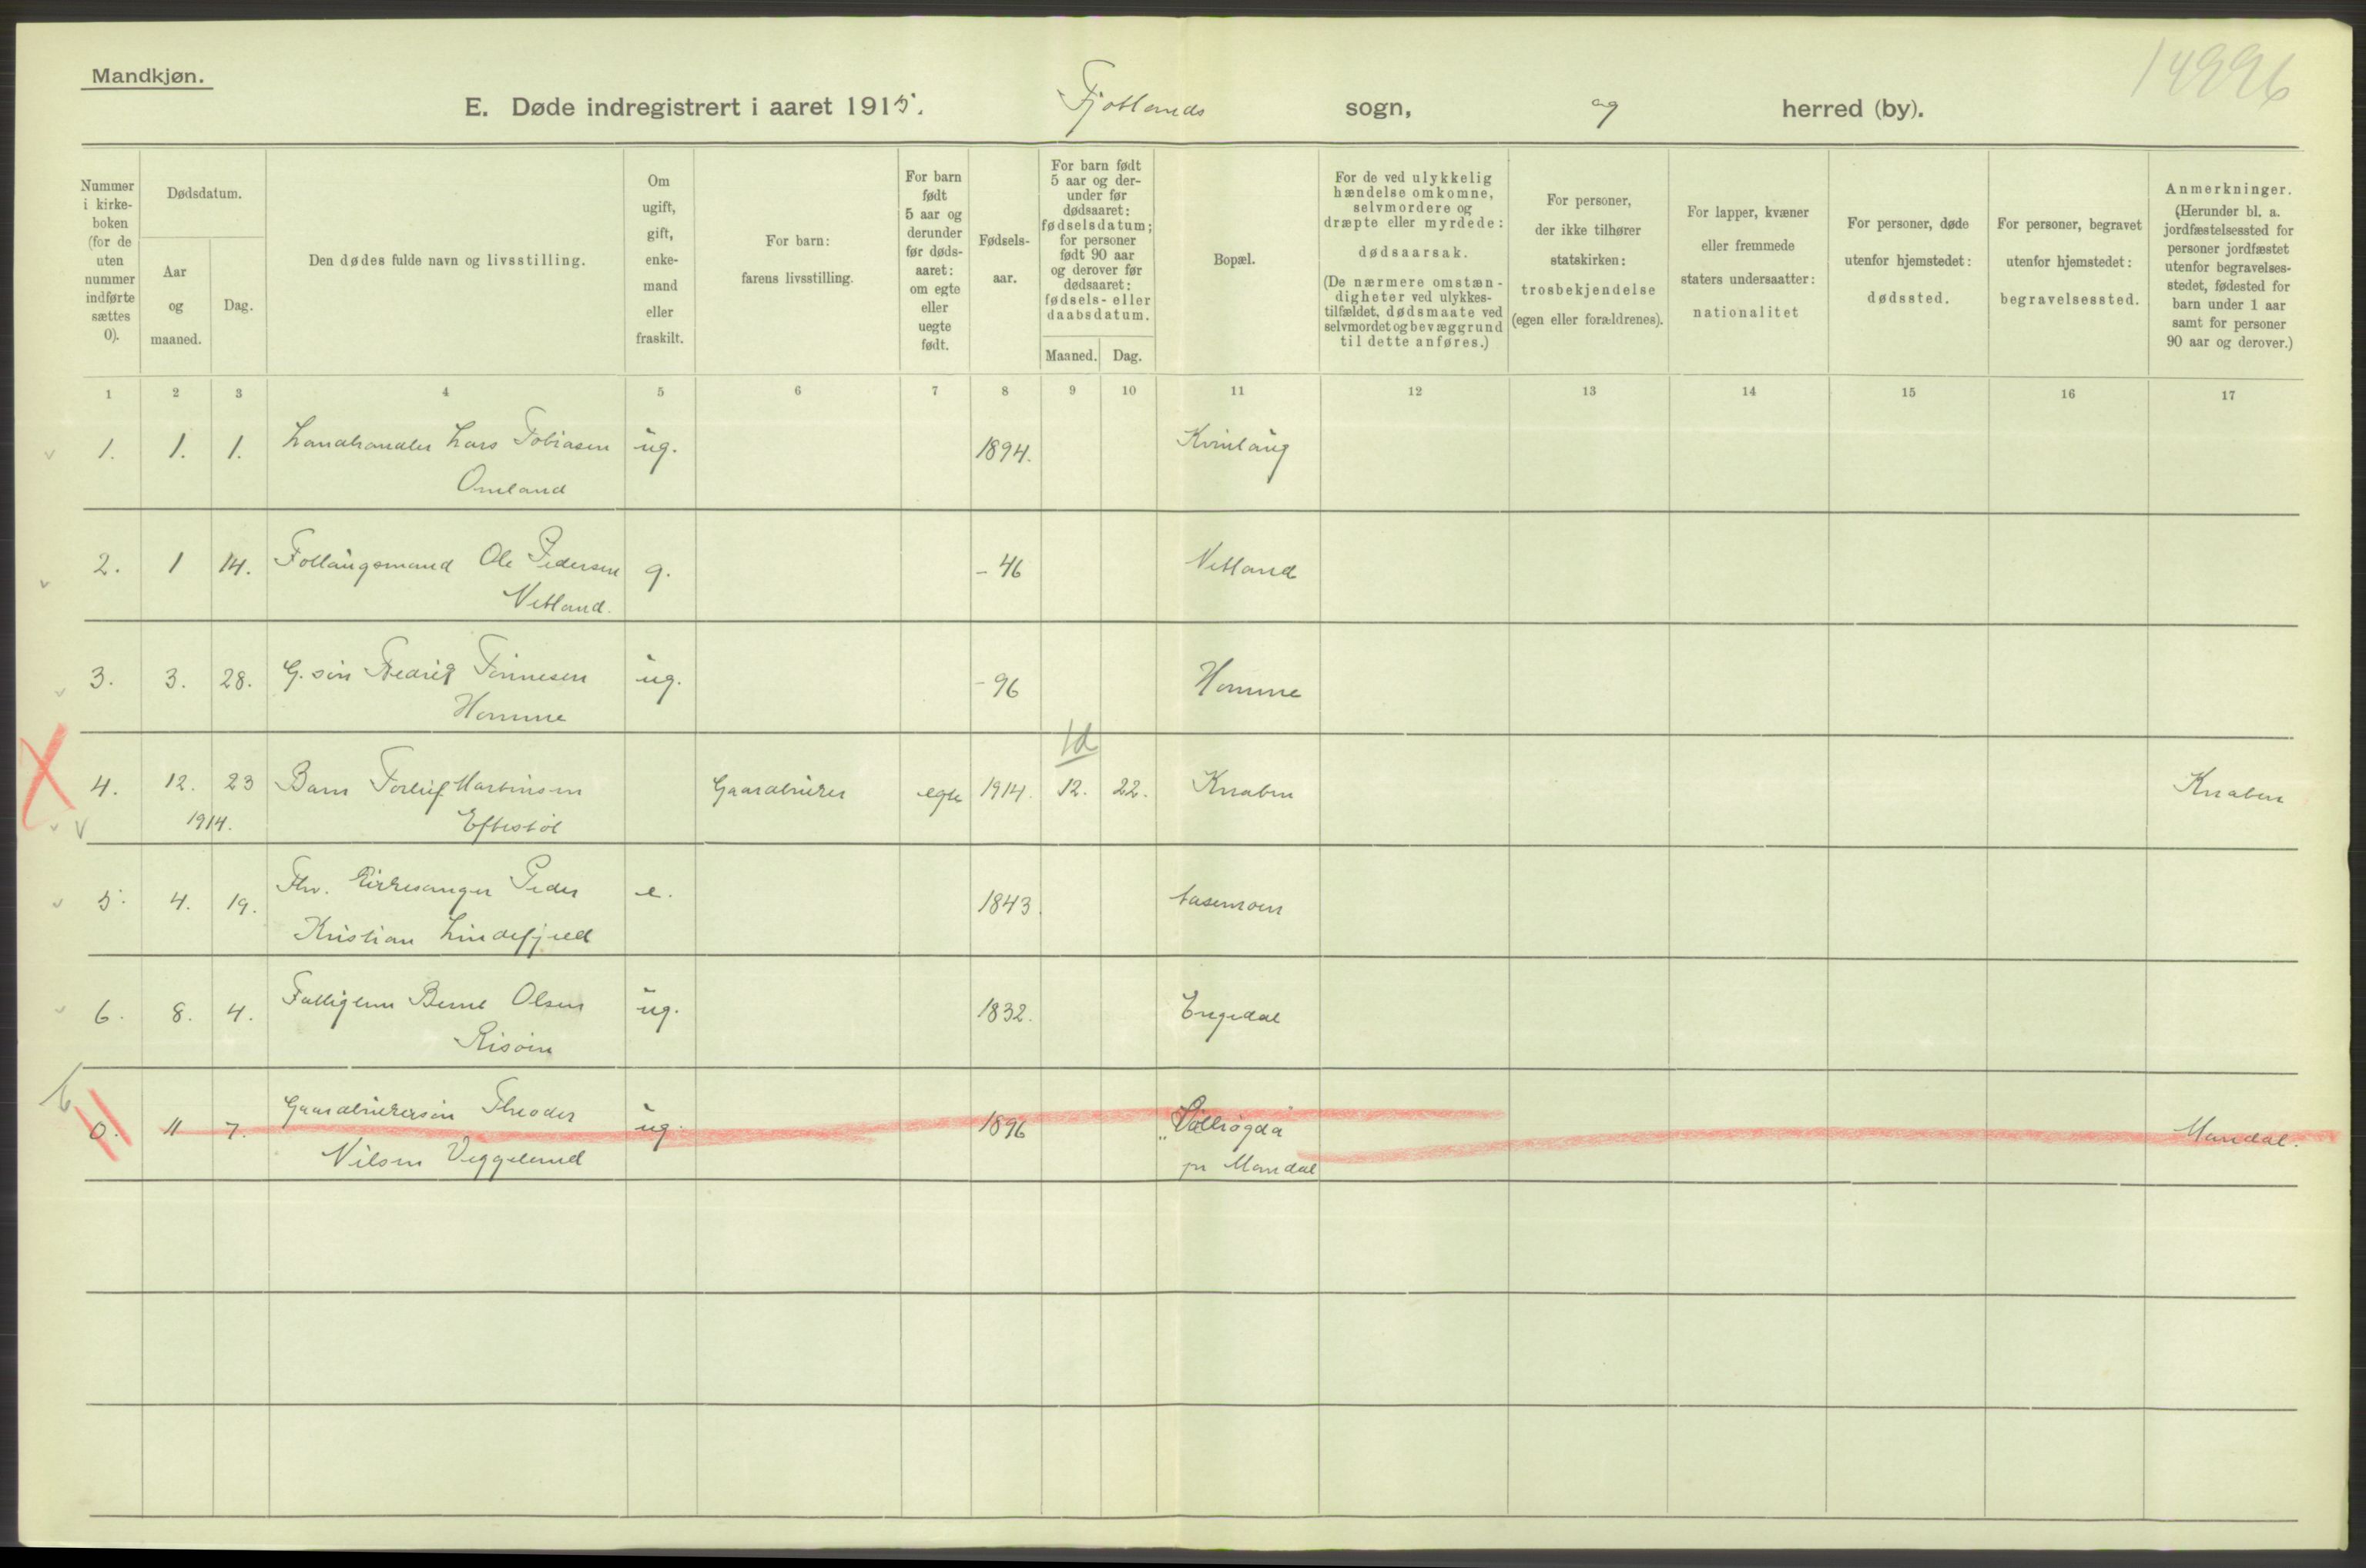 Mandkjøn.
14996
E. Døde indregistrert i aaret 1915. Fjotlands sogn, og herred (by).
Nummer i kirke- boken (for de uten nummer indførte sættes 0).
Dødsdatum.
Aar og maaned.
Dag.
Den dødes fulde navn og livsstilling.
Om ugift, gift, enke- mand eller fraskilt.
For barn: farens livsstilling.
For barn født 5 aar og derunder før døds- aaret: om egte eller uegte født.
Fødsels- aar.
For barn født 5 aar og der- under før dødsaaret: fødselsdatum; for personer født 90 aar og derover før dødsaaret: fødsels- eller daabsdatum.
Maaned. Dag.
Bopæl.
For de ved ulykkelig hændelse omkomne, selvmordere og dræpte eller myrdede: dødsaarsak. (De nærmere omstæn- digheter ved ulykkes- tilfældet, dødsmaate ved selvmordet og bevæggrund til dette anføres.)
For personer, der ikke tilhører statskirken: trosbekjendelse (egen eller forældrenes).
For lapper, kvæner eller fremmede staters undersaatter: nationalitet
For personer, døde utenfor hjemstedet: dødssted.
For personer, begravet utenfor hjemstedet: begravelsessted.
Anmerkninger. (Herunder bl. a. jordfæstelsessted for personer jordfæstet utenfor begravelses- stedet, fødested for barn under 1 aar samt for personer 90 aar og derover.)
1 2 3 4 5 6 7 8 9 10 11 12 13 14 15 16 17
1. 1. 1. Landhandler Lars Tobiasen ug. 1894. Kvinlaug
Omland
2. 1 14. Follaugsmand Ole Pedersen g. - 46 Netland
Netland.
3. 3. 28. G. søn Fredrig Tønnesen ug. - 96 Homme
Homme
1d
4. 12. 23 Barn Torleif Martinsen Gaardbruker egte 1914. 12. 22. Knaben Knaben
1914. Eftestøl
5. 4. 19. Fhv. Kirkesanger Peder e. 1843.
Kristian Lindefjeld
6. 8. 4. Fattiglem Bernt Olsen ug. 1832. Engedal
Risøin
0. 11 7. Gaardbrukersøn Theoder ug. 1896 Mandal.
Nilsen Veggeland pr Mandal